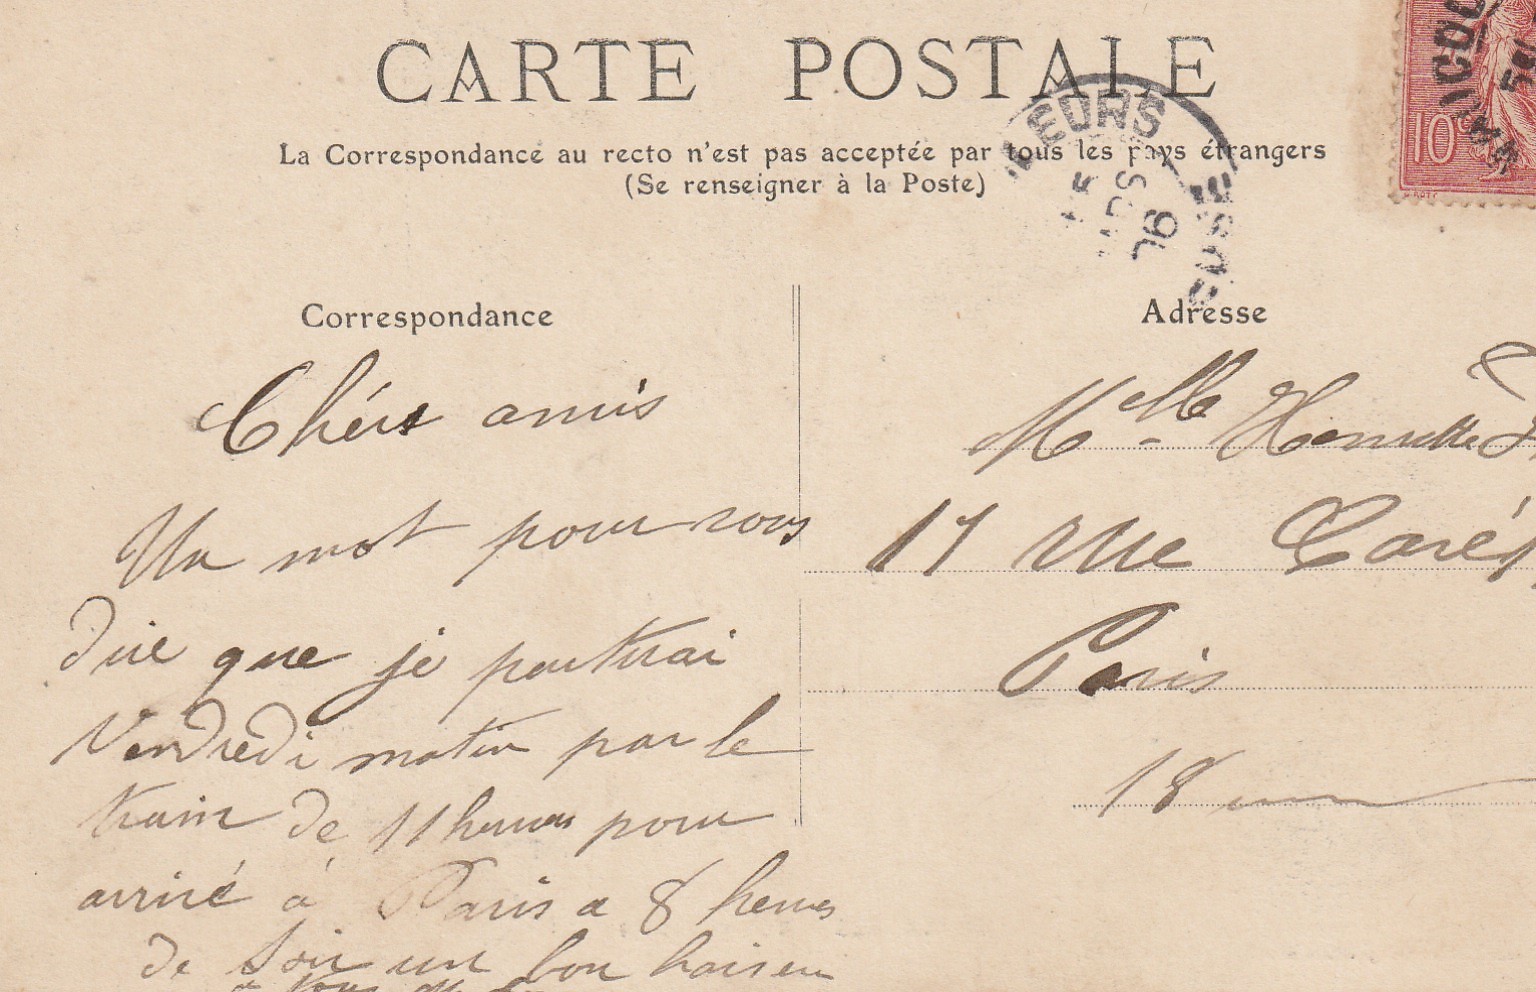 CARTE POSTALE
La Correspondance au recto n'est pas acceptée par tous les pays étrangers
(Se renseigner à la Poste)
10
Correspondance
Chérs amis
Un mot pour vous
dire que je partirai
Vendredi matin par le
train de 11 heures pour
arrivé à Paris a 8 heures
de soir un bon baiser
Adresse
Mlle Henriette
17 rue
Paris
18